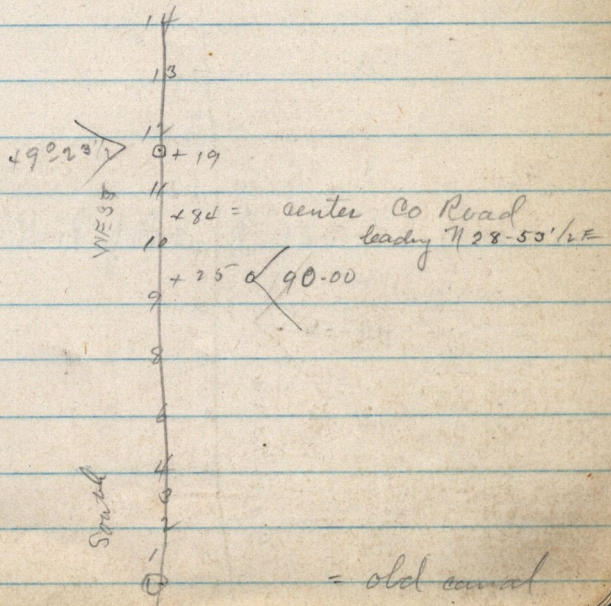 14
13
12
49°-23'½ + 19
11
+84 = center Co Road
leading N 28-53'1/2 E
10
+25 90-00
9
8
6
4
3
2
South
1
0 = old canal